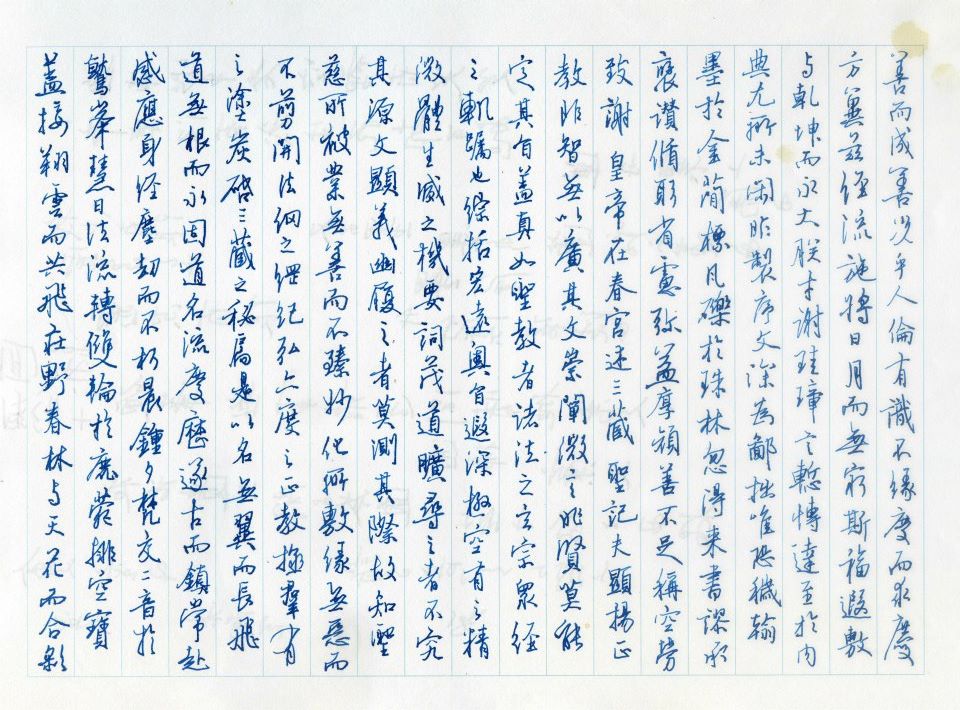 善而成善況乎人倫有識不緣慶而求慶
方冀茲經流施將日月而無窮斯福遐敷
与乾坤而永大朕才謝珪璋言慙博達至於内
典尤所未閑昨製序文深為鄙拙唯恐穢翰
墨於金簡標瓦礫於珠林忽得來書謬承
褒讚循躬省慮弥益厚顏善不足稱空勞
致謝 皇帝在春宮述三藏 聖記夫顯揚正
教非智無以廣其文崇闡微言非賢莫能
定其旨蓋真如聖教者諸法之玄宗眾經
之軌躅也綜括宏遠奧旨遐深極空有之精
微體生滅之機要詞茂道曠尋之者不究
其源文顯義幽履之者莫測其際故知聖
慈所被業無善而不臻妙化所敷緣無惡而
不剪開法網之綱紀弘六度之正教拯羣有
之塗炭啟三藏之秘扃是以名無翼而長飛
道無根而永固道名流慶歷遂古而鎮常赴
感應身經塵劫而不朽晨鍾夕梵交二音於
鷲峯慧日法流轉雙輪於鹿菀排空寶
蓋接翔雲而共飛莊野春林与天花而合彩